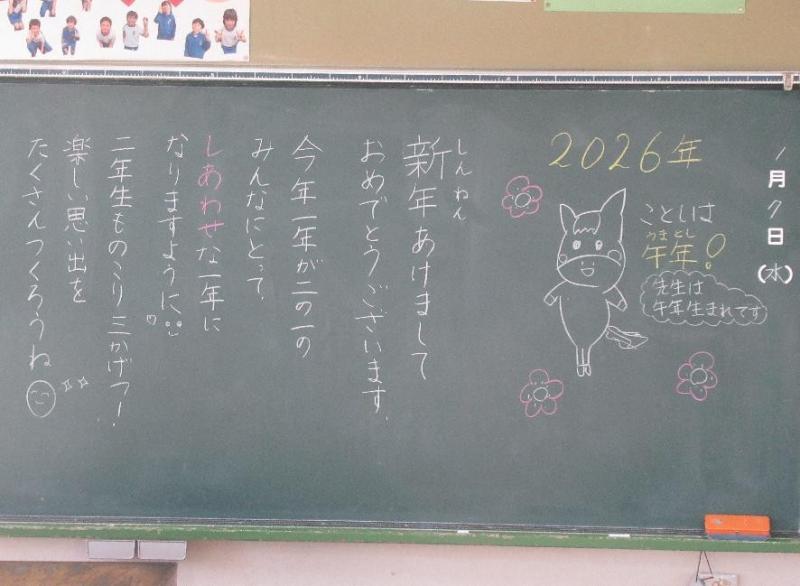 1月7日(水)
2026年
ことしは
うまとし
午年!
先生は
午年生まれです
しんねん
新年あけまして
おめでとうございます。
今年一年が二の一の
みんなにとって、
しあわせな一年に
なりますように
二年生ものこり三かげつ!
楽しい思い出を
たくさんつくろうね